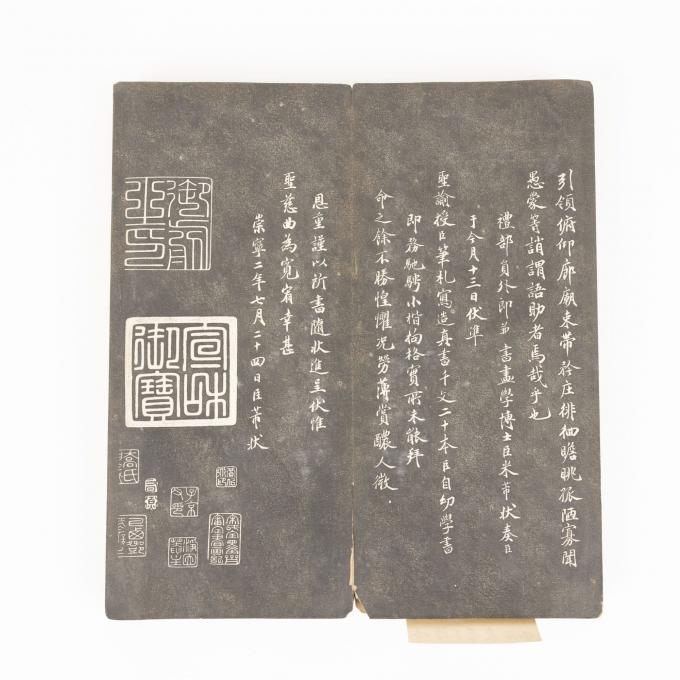 引領俯仰廊廟束帶矜庄徘徊瞻眺孤陋寡聞
愚蒙等誚謂語助者焉哉乎也
禮部員外郎兼書畫學博士臣米芾狀奏臣
于今月十三日伏準
聖諭授臣筆札寫造真書千文二十本臣自幼學書
即務馳騁小楷拘格實所未能拜
命之餘不勝惶懼況勞薄賞醲人微
恩重謹以所書隨狀進呈伏惟
聖慈曲為寬宥幸甚
崇寧二年七月二十四日臣芾狀
御府之印
宣和御寶